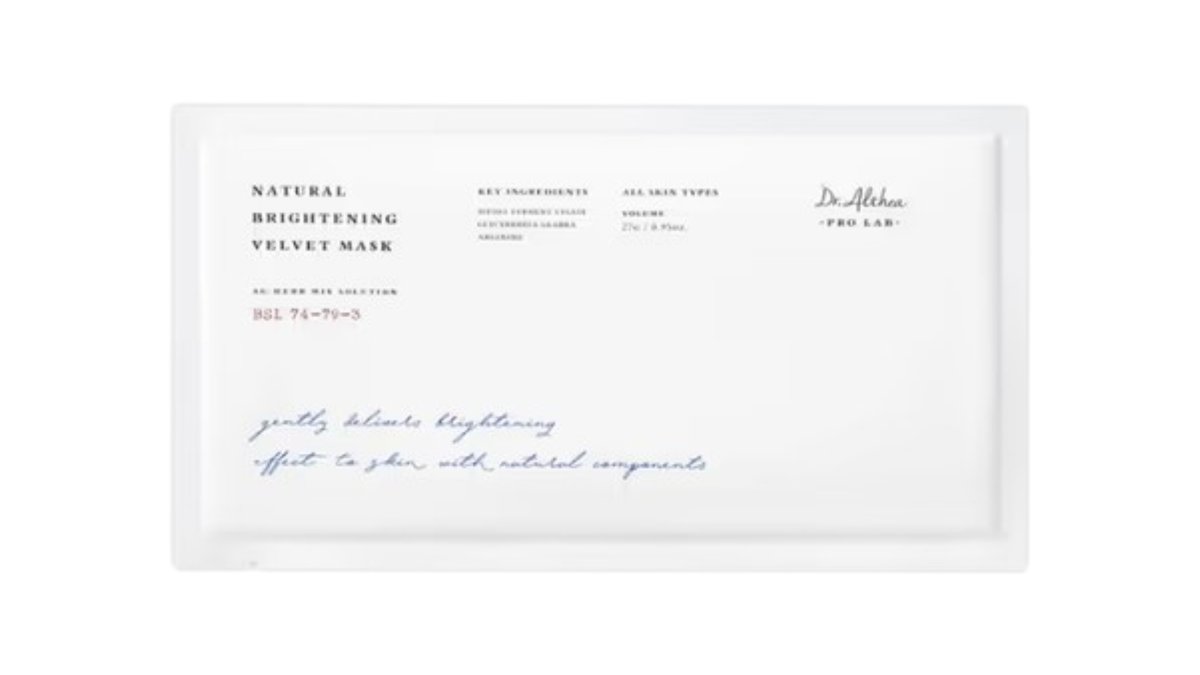 NATURAL
BRIGHTENING
VELVET MASK
AC HERB MIX SOLUTION
BSL 74-79-3
KEY INGREDIENTS
GLYCYRRHIZA GLABRA
ALL SKIN TYPES
VOLUME
27g / 0.95oz.
Dr. Althea
-PRO LAB-
gently delivers brightening
effect to skin with natural components